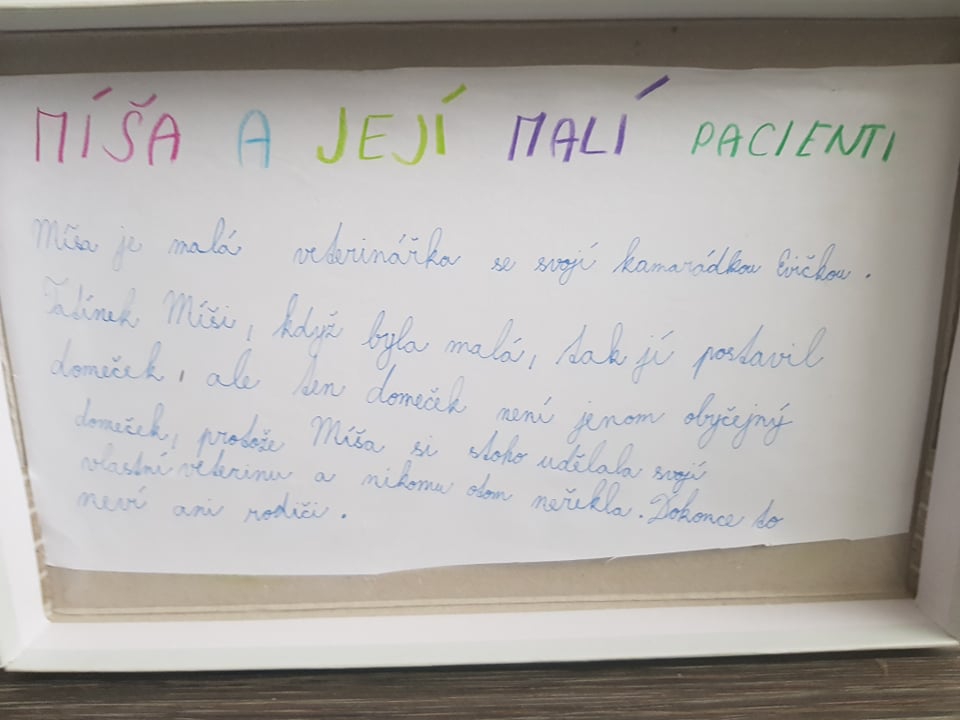 MÍŠA A JEJÍ MALÍ PACIENTI
Míša je malá veterinářka se svojí kamarádkou Evičkou.
Tatínek Míši, když byla malá, tak jí postavil
domeček, ale ten domeček není jenom obyčejný
domeček, protože Míša si stoho udělala svojí
vlastní veterinu a nikomu otom neřekla. Dokonce to
neví ani rodiči.